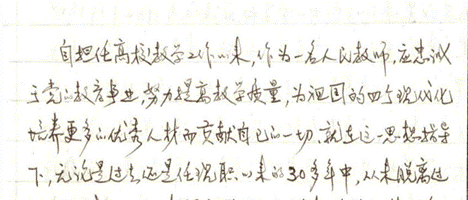 自担任高校教学工作以来，作为一名人民教师，应忠诚
于党的教育事业，努力提高教学质量，为祖国的四个现代化
培养更多的优秀人材而贡献自己的一切。就在这一思想指导
下，无论是过去还是任现职以来的30多年中，从未脱离过